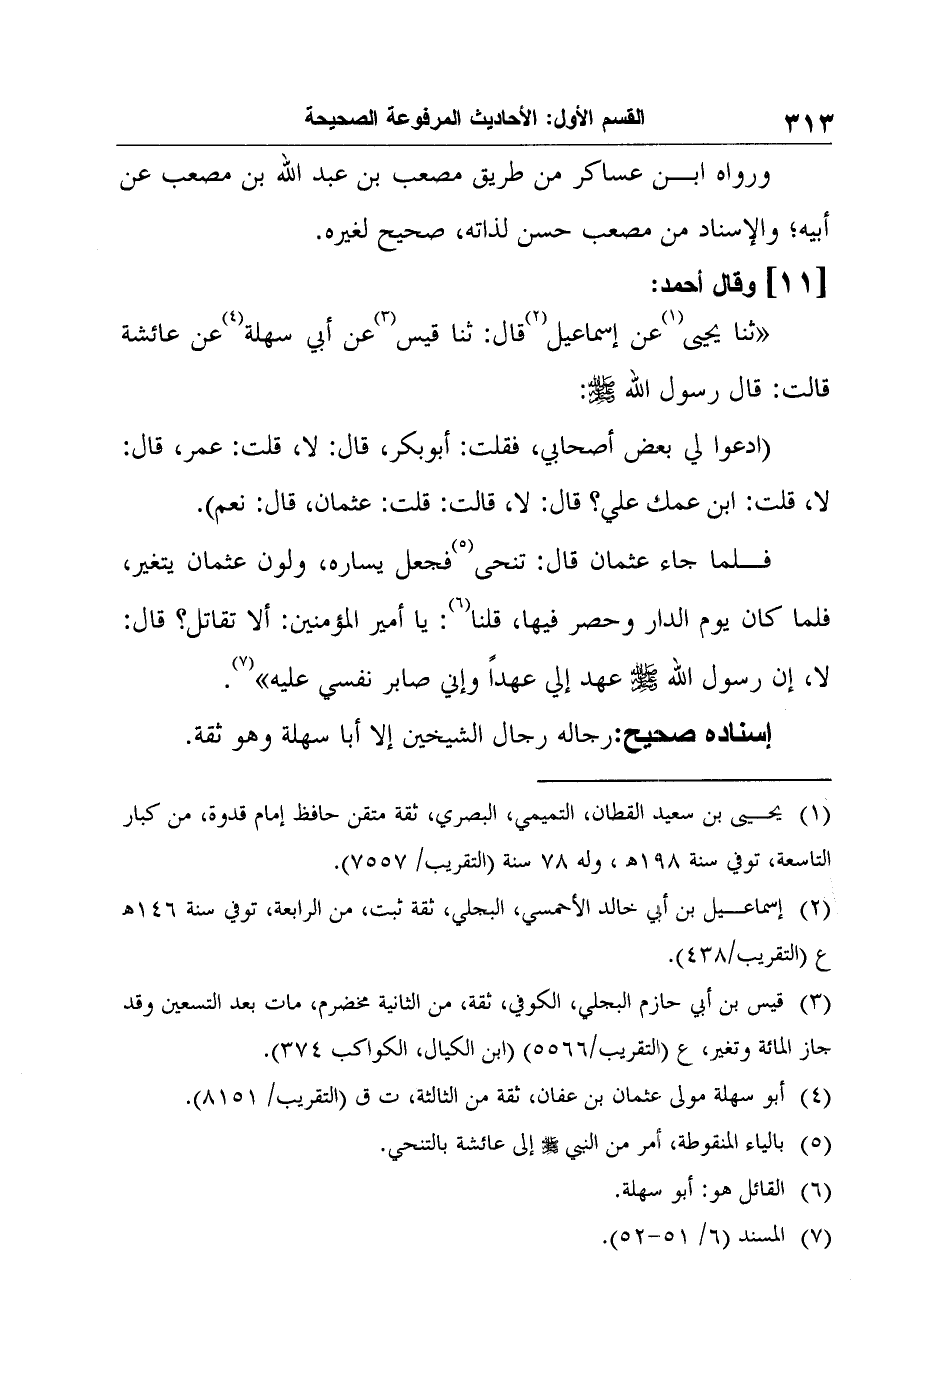 القسم الأول: الأحاديث المرفوعة الصحيحة ٣١٣
ورواه ابـــن عساكر من طريق مصعب بن عبد الله بن مصعب عن
أبيه؛ والإسناد من مصعب حسن لذاته، صحيح لغيره.
[١١] وقال أحمد:
«ثنا يحيى(١) عن إسماعيل(٢) قال: ثنا قيس(٣) عن أبي سهلة(٤) عن عائشة
قالت: قال رسول الله ﷺ:
(ادعوا لي بعض أصحابي، فقلت: أبوبكر، قال: لا، قلت: عمر، قال:
لا، قلت: ابن عمك علي؟ قال: لا، قالت: قلت: عثمان، قال: نعم).
فـــلما جاء عثمان قال: تنحى(٥) فجعل يساره، ولون عثمان يتغير،
فلما كان يوم الدار وحصر فيها، قلنا(٦): يا أمير المؤمنين: ألا تقاتل؟ قال:
لا، إن رسول الله ﷺ عهد إلي عهداً وإني صابر نفسي عليه»(٧).
إسناده صحيح: رجاله رجال الشيخين إلا أبا سهلة وهو ثقة.
(١) يحـــيى بن سعيد القطان، التميمي، البصري، ثقة متقن حافظ إمام قدوة، من كبار
التاسعة، توفي سنة ١٩٨هـ ، وله ٧٨ سنة (التقريب/ ٧٥٥٧).
(٢) إسماعـــيل بن أبي خالد الأحمسي، البجلي، ثقة ثبت، من الرابعة، توفي سنة ١٤٦هـ
ع (التقريب/٤٣٨).
(٣) قيس بن أبي حازم البجلي، الكوفي، ثقة، من الثانية مخضرم، مات بعد التسعين وقد
جاز المائة وتغير، ع (التقريب/٥٥٦٦) (ابن الكيال، الكواكب ٣٧٤).
(٤) أبو سهلة مولى عثمان بن عفان، ثقة من الثالثة، ت ق (التقريب/ ٨١٥١).
(٥) بالياء المنقوطة، أمر من النبي ﷺ إلى عائشة بالتنحي.
(٦) القائل هو: أبو سهلة.
(٧) المسند (٦/ ٥١-٥٢).